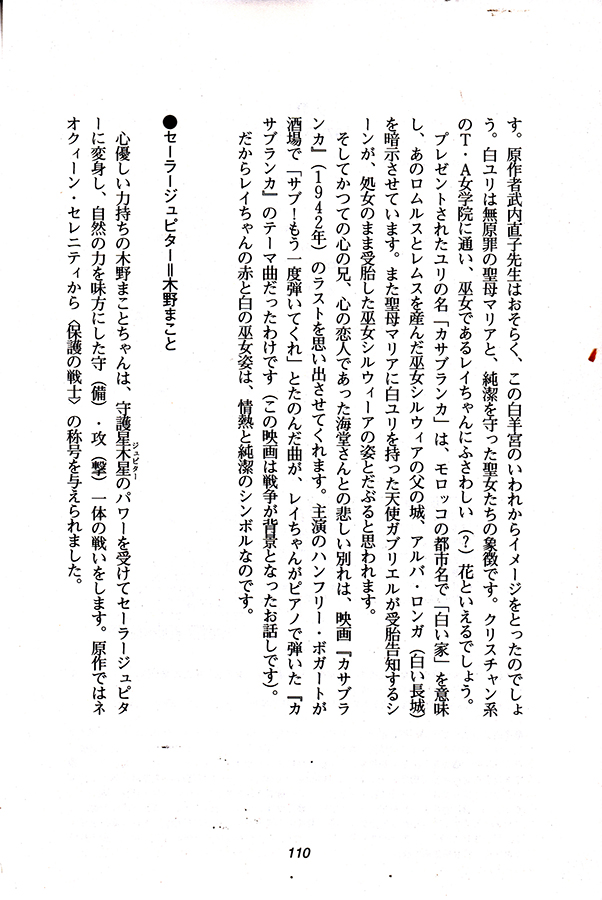 す。原作者武内直子先生はおそらく、この白羊宮のいわれからイメージをとったのでしょ
う。白ユリは無原罪の聖母マリアと、純潔を守った聖女たちの象徴です。クリスチャン系
のT・A女学院に通い、巫女であるレイちゃんにふさわしい（？）花といえるでしょう。
プレゼントされたユリの名「カサブランカ」は、モロッコの都市名で「白い家」を意味
し、あのロムルスとレムスを産んだ巫女シルウィアの父の城、アルバ・ロンガ（白い長城）
を暗示させています。また聖母マリアに白ユリを持った天使ガブリエルが受胎告知するシ
ーンが、処女のまま受胎した巫女シルウィーアの姿とだぶると思われます。
そしてかつての心の兄、心の恋人であった海堂さんとの悲しい別れは、映画『カサブラ
ンカ』（1942年）のラストを思い出させてくれます。主演のハンフリー・ボガートが
酒場で「サブ！もう一度弾いてくれ」とたのんだ曲が、レイちゃんがピアノで弾いた『カ
サブランカ』のテーマ曲だったわけです（この映画は戦争が背景となったお話しです）。
だからレイちゃんの赤と白の巫女姿は、情熱と純潔のシンボルなのです。
●セーラージュピター＝木野まこと
心優しい力持ちの木野まことちゃんは、守護星木星のパワーを受けてセーラージュピタ
ジュピター
ーに変身し、自然の力を味方にした守（備）・攻（撃）一体の戦いをします。原作ではネ
オクィーン・セレニティから〈保護の戦士〉の称号を与えられました。
110